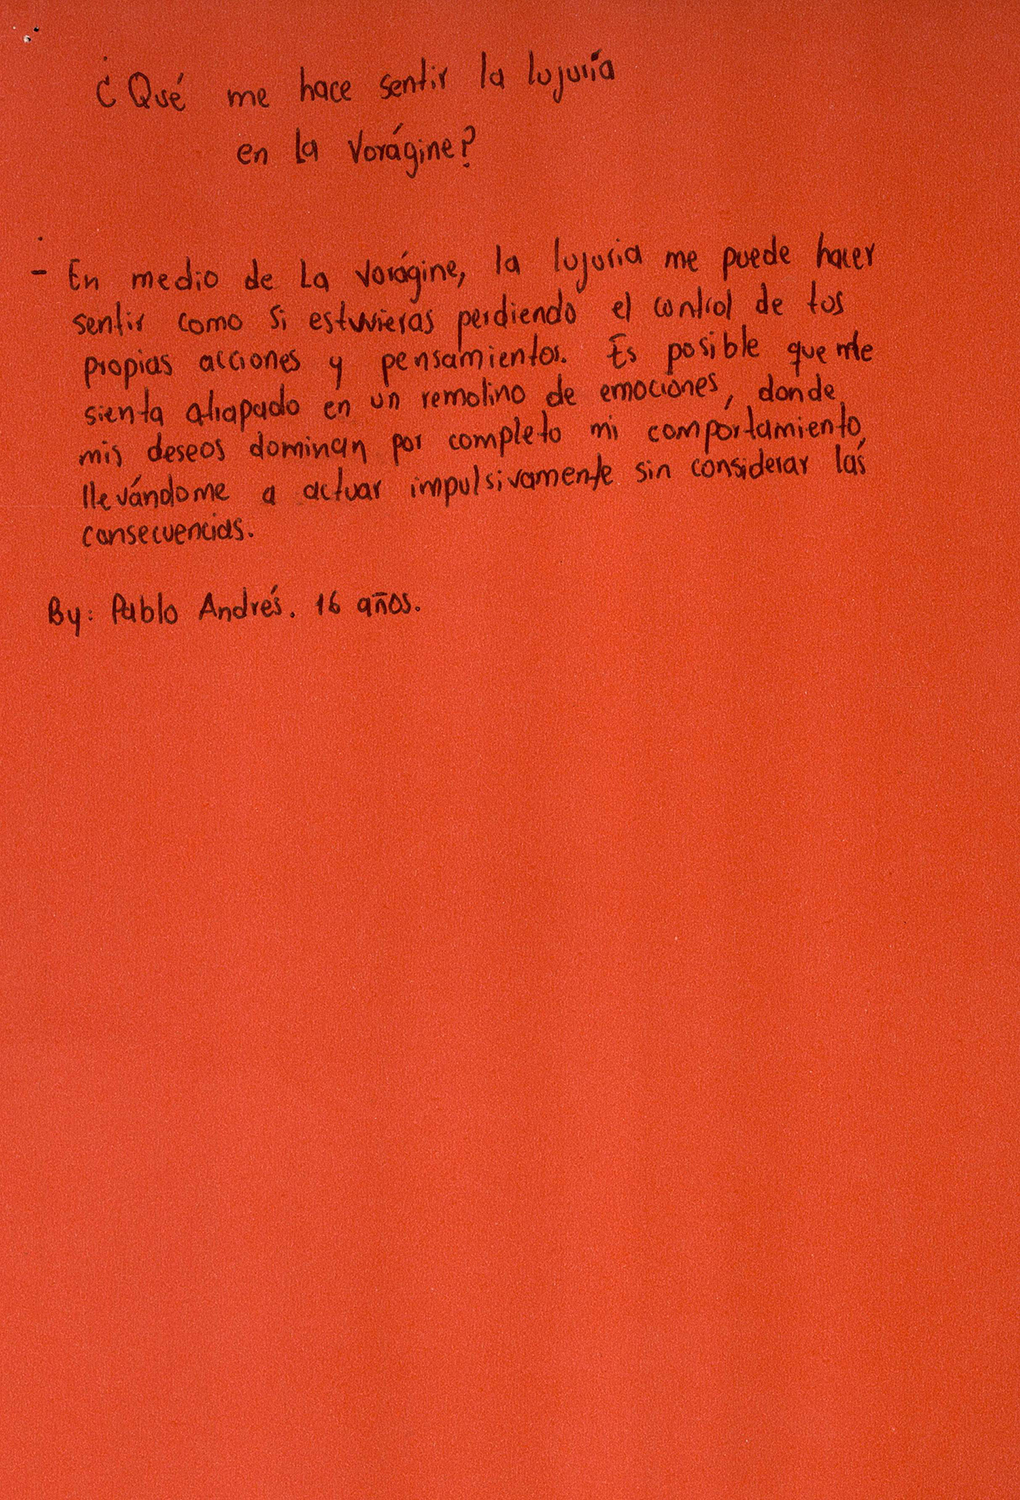 ¿Qué me hace sentir la lujuria
en la Vorágine?
- En medio de La Vorágine, la lujuria me puede hacer
sentir como si estuvieras perdiendo el control de tus
propias acciones y pensamientos. Es posible que me
sienta atrapado en un remolino de emociones, donde
mis deseos dominan por completo mi comportamiento,
llevándome a actuar impulsivamente sin considerar las
consecuencias.
By: Pablo Andrés. 16 años.